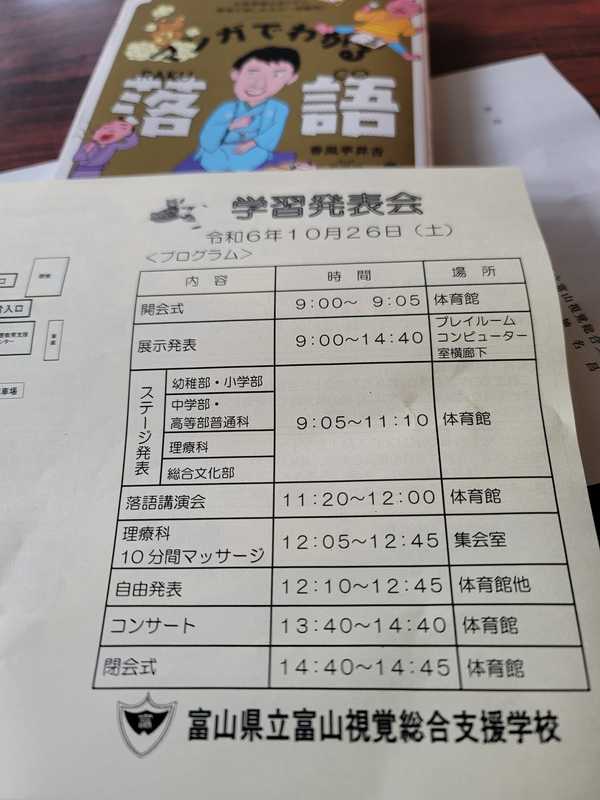 マンガでわかる
RAKU GO
落語
春風亭昇吉
学習発表会
令和6年10月26日（土）
＜プログラム＞
内容 時間 場所
開会式 9:00～ 9:05 体育館
展示発表 9:00～14:40 プレイルーム
コンピューター
室横廊下
ステージ発表
幼稚部・小学部
中学部・
高等部普通科
理療科
総合文化部
9:05～11:10 体育館
落語講演会 11:20～12:00 体育館
理療科
10分間マッサージ 12:05～12:45 集会室
自由発表 12:10～12:45 体育館他
コンサート 13:40～14:40 体育館
閉会式 14:40～14:45 体育館
富
富山県立富山視覚総合支援学校